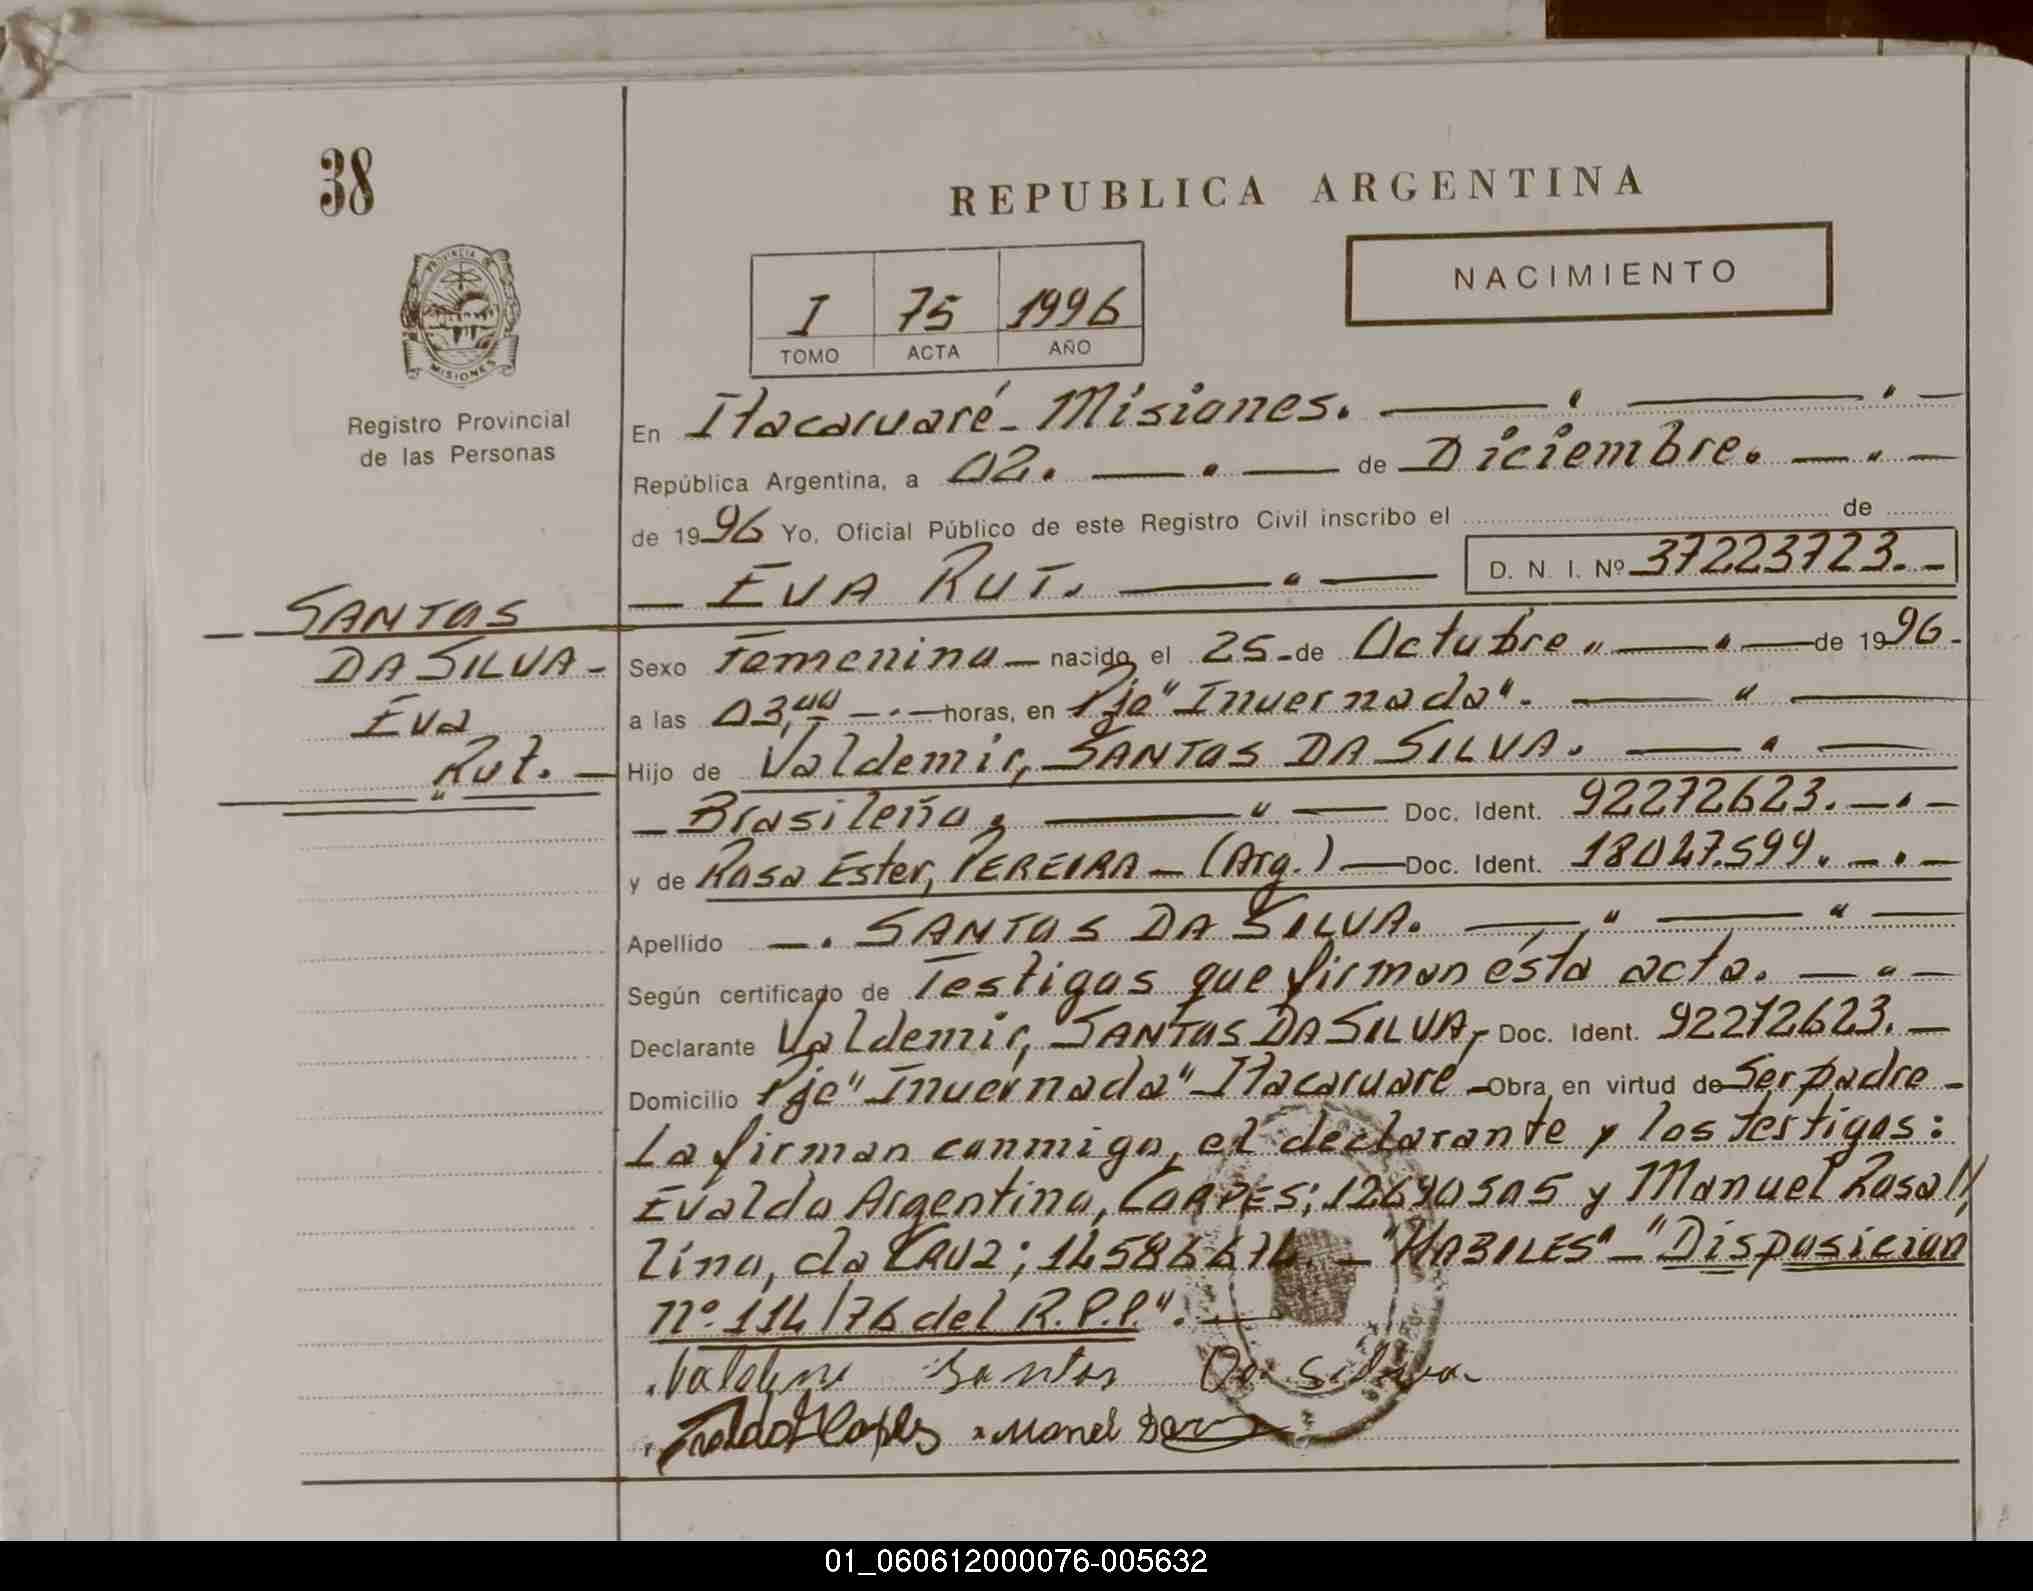 38
REPUBLICA ARGENTINA
NACIMIENTO
I 75 1996
TOMO ACTA AÑO
PROVINCIA DE
MISIONES
Registro Provincial
de las Personas
En Itacaruaré - Misiones.
República Argentina, a 02. de Diciembre.
de 1996 Yo, Oficial Público de este Registro Civil inscribo el de
EVA RUT. D. N. I. Nº 37223723.-
SANTOS
DA SILVA -
Eva
Rut. -
Sexo Femenino - nacido el 25 - de Octubre de 1996-
a las 03,00 horas, en Pje "Invernada".
Hijo de Valdemir, SANTOS DA SILVA.
Brasileña. Doc. Ident. 92272623.
y de Rosa Ester, PEREIRA - (Arg.) Doc. Ident. 18047.599.
Apellido SANTOS DA SILVA.
Según certificado de Testigos que firman ésta acta.
Declarante Valdemir, SANTOS DA SILVA, Doc. Ident. 92272623.-
Domicilio Pje "Invernada" Itacaruaré - Obra en virtud de Ser padre -
La firman conmigo, el declarante y los testigos:
Evaldo Argentino, LOAPES; 12690505 y Manuel Rosa//
lino, da CRUZ; 14586674. - "HABILES" - "Disposición
nº 114/76 del R.P.P.".
Santos Da Silva
Manel
01_060612000076-005632